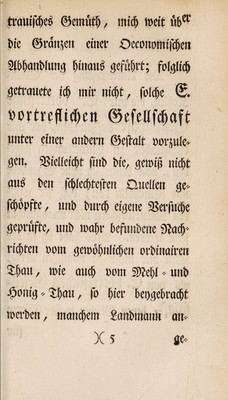 trauisches Gemüth, mich weit über
die Gränzen einer Oeconomischen
Abhandlung hinaus geführt; folglich
getrauete ich mir nicht, solche E.
vortreflichen Gesellschaft
unter einer andern Gestalt vorzule-
gen. Vielleicht sind die, gewiß nicht
aus den schlechtesten Quellen ge-
schöpfte, und durch eigene Versuche
geprüfte, und wahr befundene Nach-
richten vom gewöhnlichen ordinairen
Thau, wie auch vom Mehl- und
Honig-Thau, so hier beygebracht
werden, manchem Landmann an-
)( 5 ge-